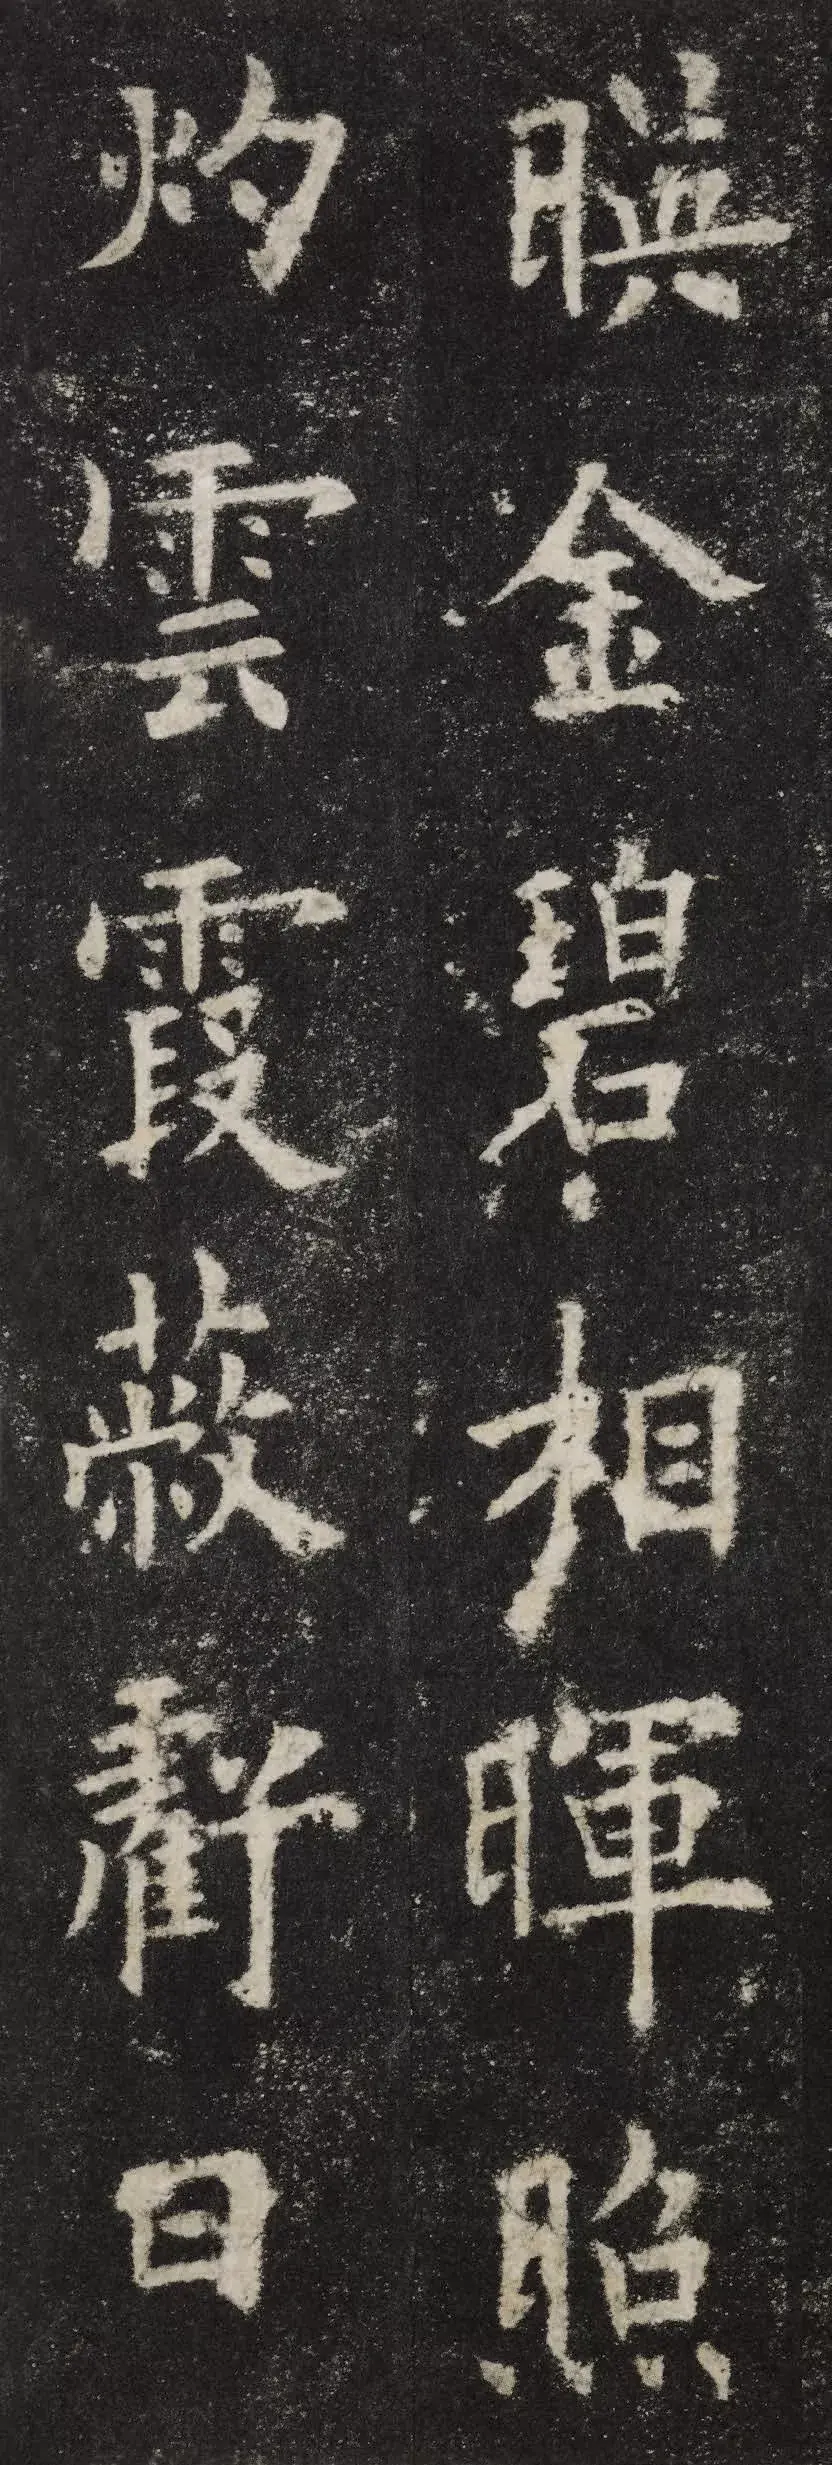 暎金碧相暉照
灼雲霞蔽虧日